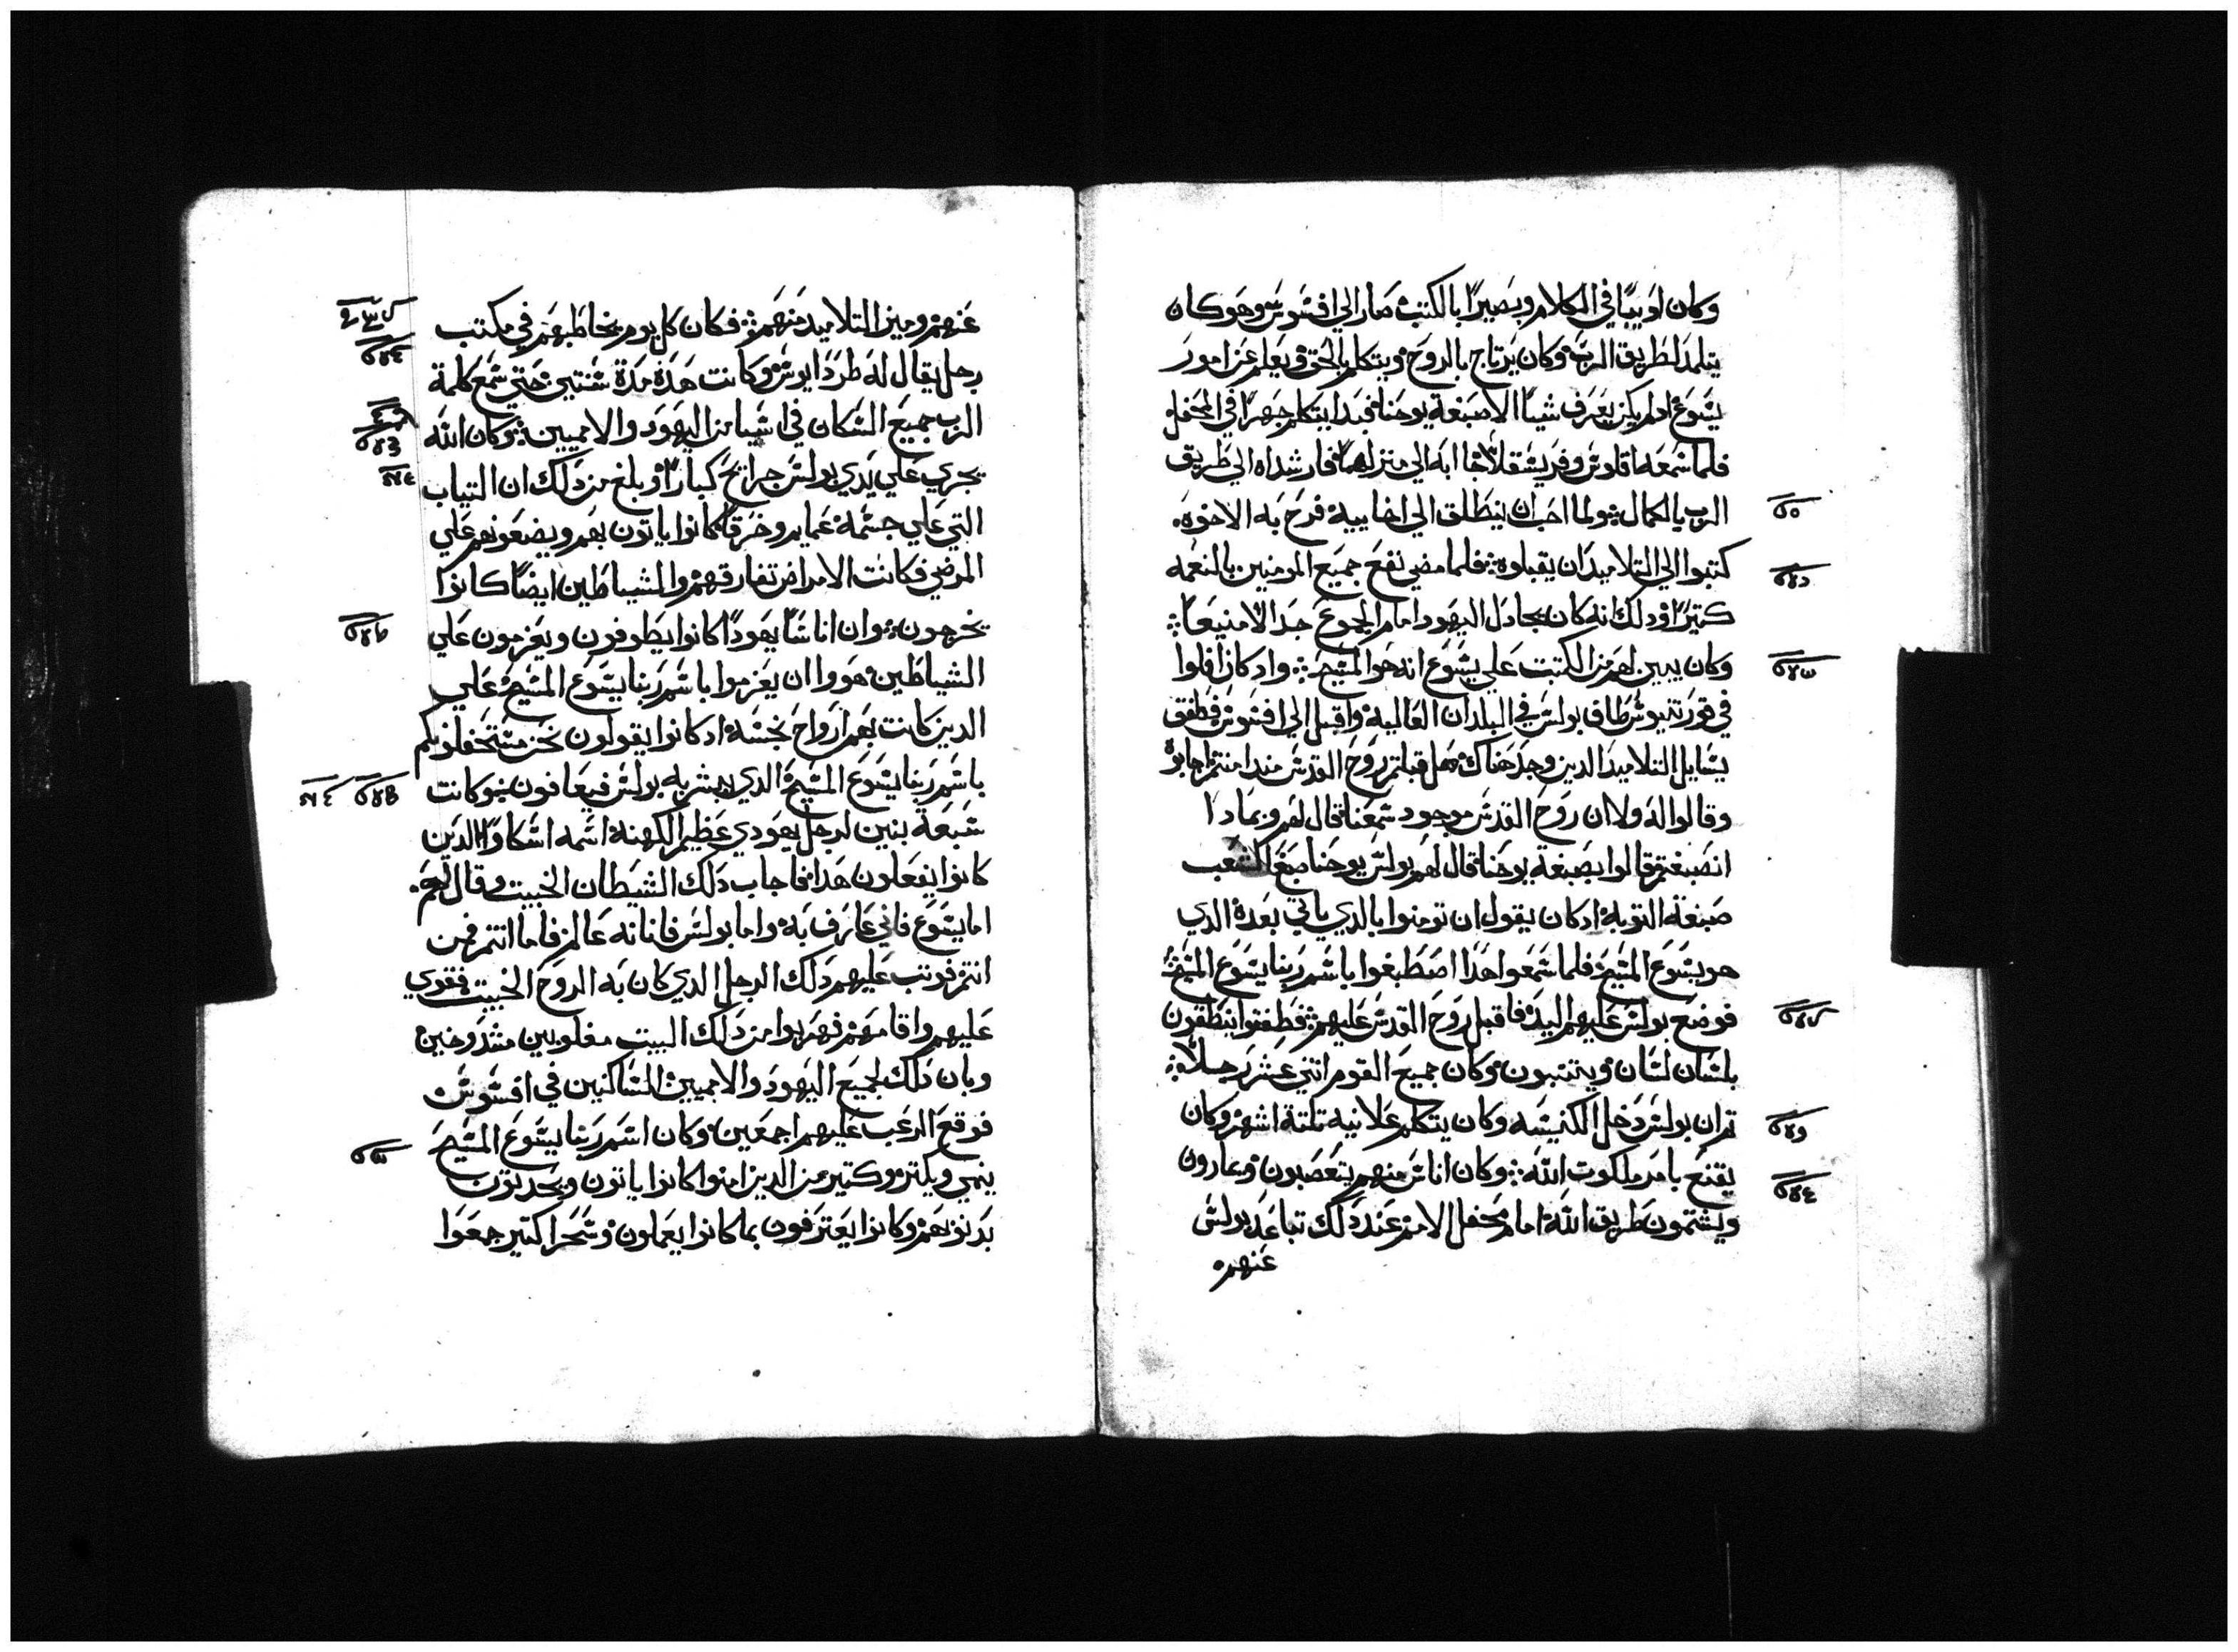 وكان لوبيبًا في الكلام وبصيرًا بالكتب صار الي افسوس وهو كان
يتلمد لطريق الرب وكان يرتاح بالروح ويتكلم بالحق ويعلم عن امور
يسوع اد لم يكن يعرف شياً الا صبغة يوحنا فبدا يتكلم جهرًا في المحفل
فلما سمعه اقلوس وفريسقلا جا ابه الي منزلهما فارشداه الي طريق
الرب بالكمال ولما احب ان ينطلق الي اخاييه فرح به الاخوه
كتبوا الي التلاميد ان يقبلوه فلما مضي نفع جميع المومنين بالنعمه
كتيرًا ودلك انه كان يجادل اليهود امام الجموع جدالا منيعاً
وكان يبين لهم من الكتب علي يسوع انه هو المسيح واد كان افلوا
في قورنتيوس طاف بولس في البلدان العاليه واقبل الي افسوس فطفق
يسايل التلاميد الدين وجد هناك هل قبلتم روح القدس مند امنتم اجابوه
وقالوا له ولا ان روح القدس موجود سمعنا قال لهم وبمادا
انصبغتم قالوا بصبغة يوحنا قال لهم بولس يوحنا صبغ الشعب
صبغة التوبه ادكان يقول ان تومنوا بالدي ياتي بعده الدي
هو يسوع المسيح فلما سمعوا هدا اصطبغوا باسم ربنا يسوع المسيح
فوضع بولس عليهم اليد فاقبل روح القدس عليهم فطفقوا ينطقون
بلسان لسان ويتنبون وكان جميع القوم اتني عشر رجلاً
تم ان بولس دخل الكنيسه وكان يتكلم علانيه تلتة اشهر وكان
يقنع بامر ملكوت الله وكان اناس منهم يتعصبون ويمارون
ويشتمون طريق الله امام محفل الامم عند دلك تباعد بولس
عنهم
عنهم وميز التلاميد منهم فكان كل يوم يخاطبهم في مكتب
رجل يقال له طردايوس وكانت هده مدة سنتين حتي سمع كلمة
الرب جميع السكان في اسيا من اليهود والامميين وكان الله
يجري علي يدي بولس جرايح كبارًا وبلغ من دلك ان التياب
التي علي جسمه عمايم وخرقًا كانوا ياتون بهم ويضعونهم علي
المرضي فكانت الامراض تفارقهم والشياطين ايضًا كانوا
يخرجون وان اناسًا يهودًا كانوا يطوفون ويعزمون علي
الشياطين هووا ان يعزموا باسم ربنا يسوع المسيح علي
الدين كانت بهم ارواح نجسه ادكانوا يقولون نحن مستحفلونكم
باسم ربنا يسوع المسيح الدي يبشر به بولس فيعافون وكانت
سبعة بنين لرجل يهودي عظيم الكهنة اسمه اسكاوا الدين
كانوا يفعلون هدا فاجاب دلك الشيطان الخبيت وقال لهم
اما يسوع فاني عارف به واما بولس فانا نه عالم فاما انتم فمن
انتم فوتب عليهم دلك الرجل الدي كان به الروح الخبيت فقوي
عليهم واقامهم فهربوا من دلك البيت مغلوبين مشدوخين
وبان دلك لجميع اليهود والامميين الساكنين في افسوس
فوقع الرعب عليهم اجمعين وكان اسم ربنا يسوع المسيح
ينمي ويكتر وكتير من الدين امنوا كانوا ياتون ويحدتون
بدنوبهم وكانوا يعترفون بما كانوا يعملون وسحرا كتير جمعوا